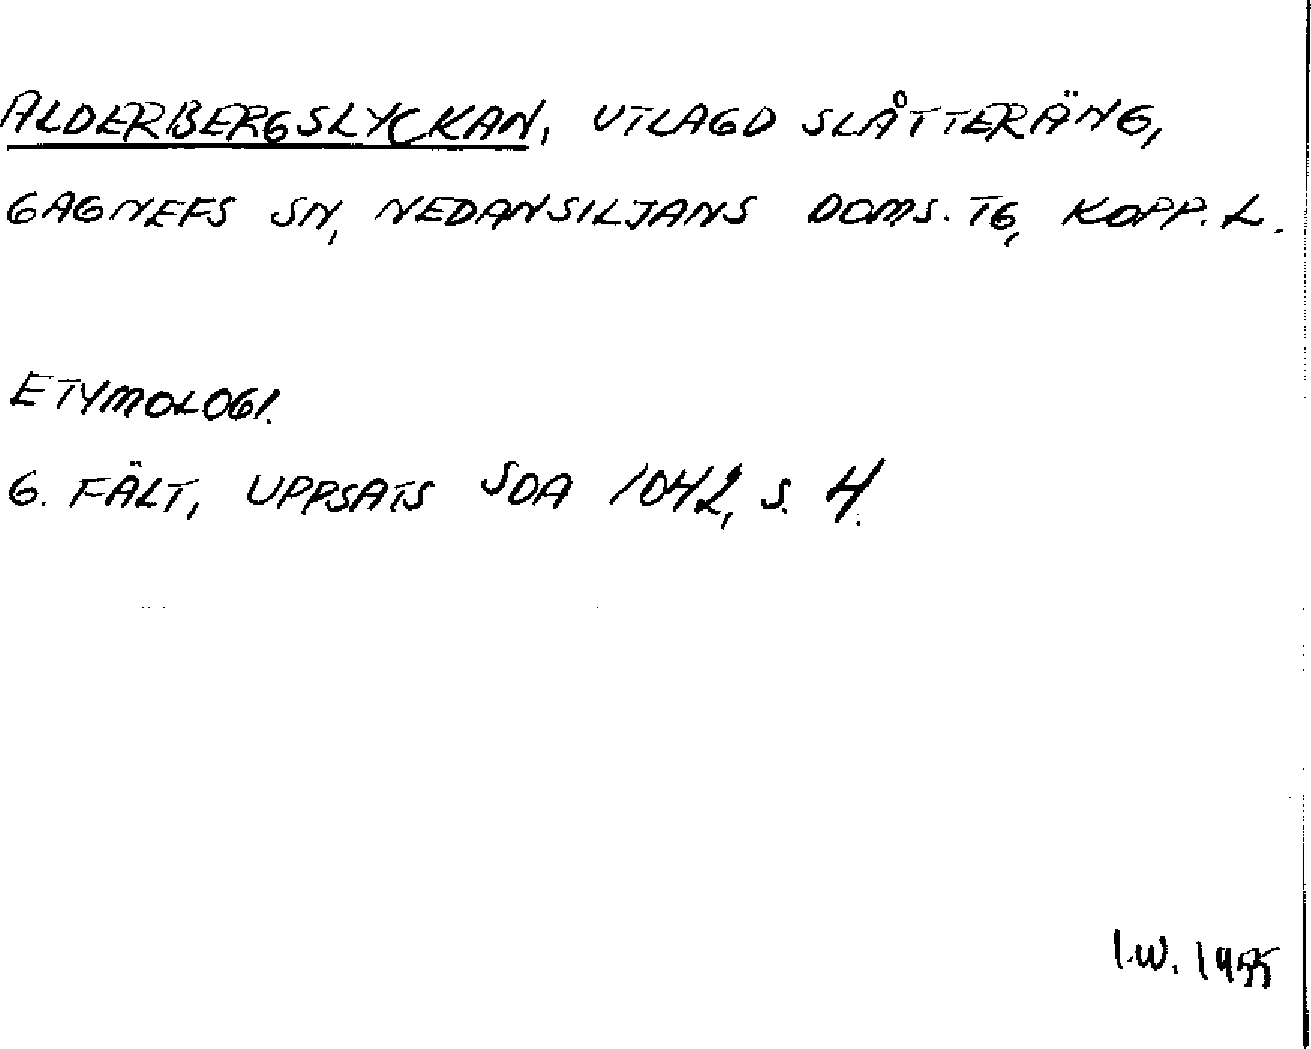 ALDERBERGSLYCKAN, UTLAGD SLÅTTERÄNG,
GAGNEFS SN, NEDANSILJANS DOMS. TG, KOPP. L.
ETYMOLOGI.
G. FÄLT, UPPSATS SOA 1042, S. 4.
I.W. 1955